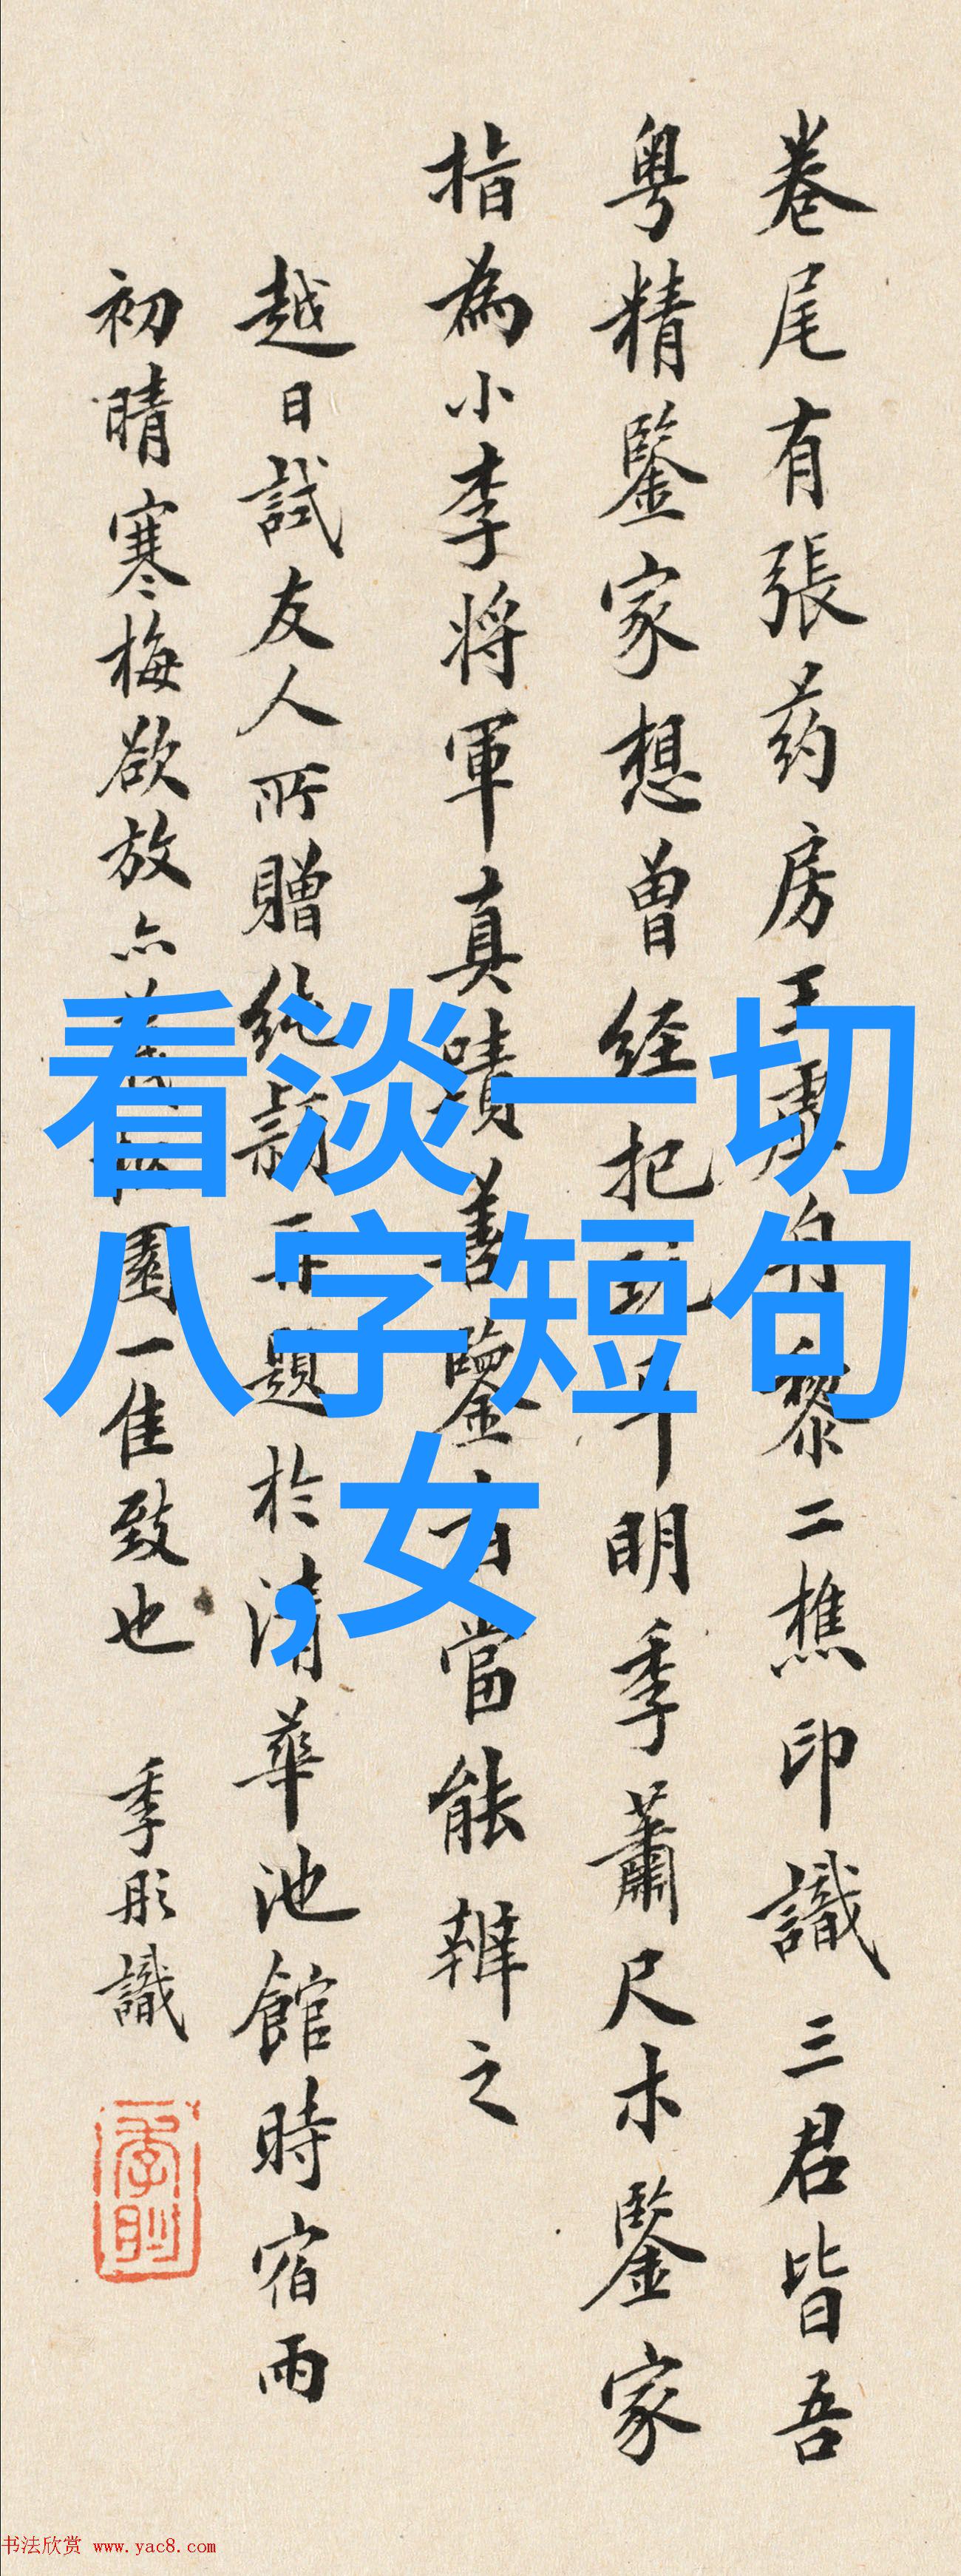 卷尾有張药房王虛舟黎二樵印識三君皆吾
粤精鑒家想曾经把玩耳明季蕭尺木鑒家
指為小李将軍真蹟善鑒者當能辨之
越日試友人所贈純穎再題於清華池館時宿雨
初晴寒梅欲放亦園一佳致也 季彤識
看淡一切
八字短句
,女
书法欣赏 www.yac8.com